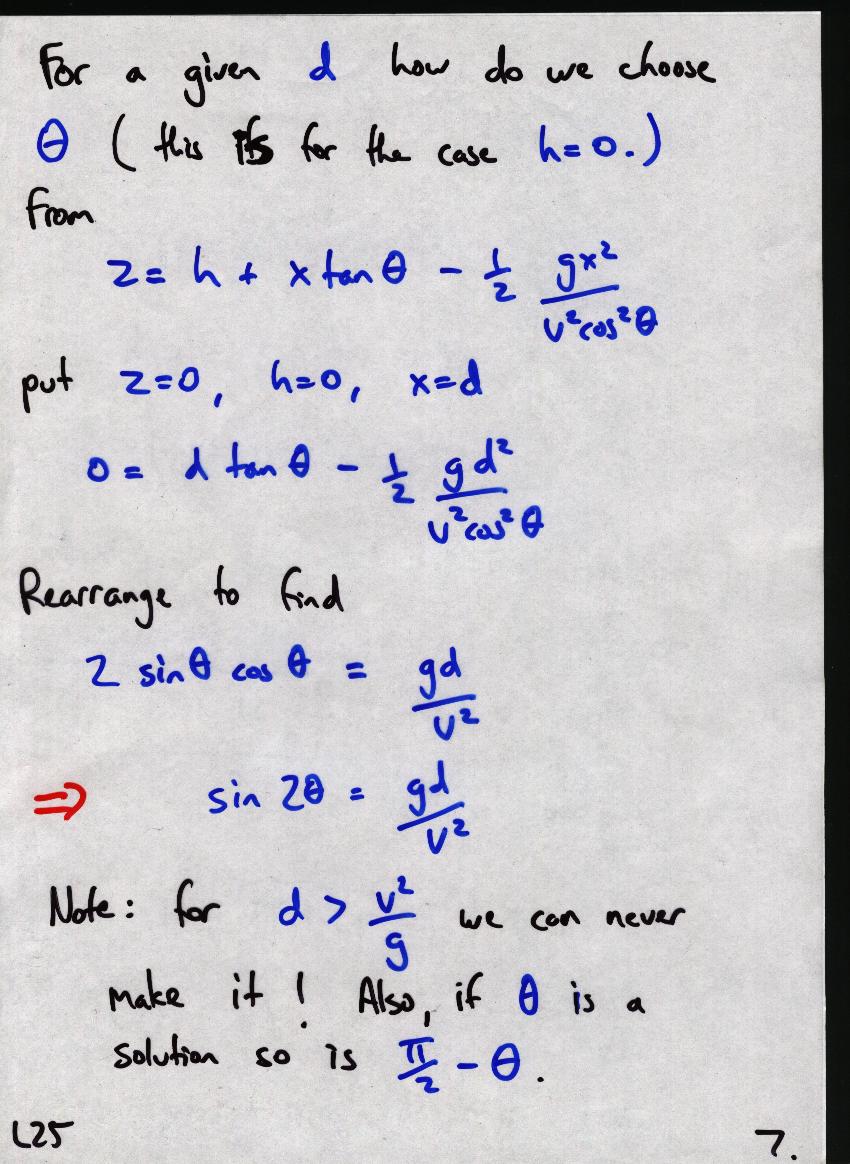 For a given d how do we choose
θ (this is for the case h=0.)
From
z = h + x tan θ - 1/2 gx²/v²cos²θ
put z=0, h=0, x=d
0 = d tan θ - 1/2 gd²/v²cos²θ
Rearrange to find
2 sinθ cos θ = gd/v²
⇒ sin 2θ = gd/v²
Note: for d > v²/g we can never
make it! Also, if θ is a
solution so is π/2 - θ.
L25 7.